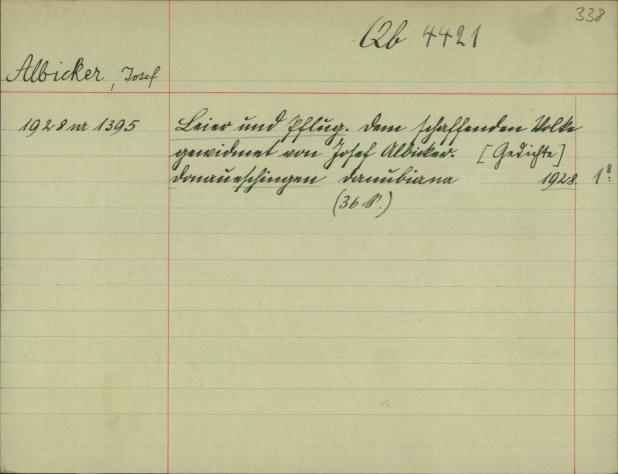 338
Qb 4421
Albicker, Josef
1928 nr 1395
Leier und Pflug. Dem schaffenden Volke
gewidmet von Josef Albicker. [Gedichte]
Donaueschingen Danubiana 1928. 1 8°
(36 S.)